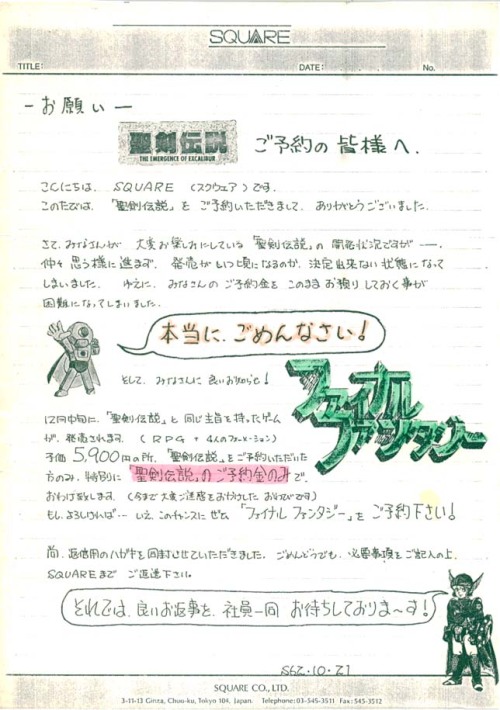 SQUARE
TITLE: DATE: No.
－お願い－
聖剣伝説
THE EMERGENCE OF EXCALIBUR
ご予約の皆様へ.
こんにちは. SQUARE (スクウェア)です.
このたびは.「聖剣伝説」を ご予約いただきまして. ありがとうございました.
さて. みなさんが 大変お楽しみにしている「聖剣伝説」の 開発状況ですが ──.
仲々 思う様に進まず. 発売がいつ頃になるのか. 決定出来ない状態になって
しまいました. ゆえに. みなさんの ご予約金を このまま お預り しておく事が
困難になってしまいました.
本当に. ごめんなさい!
そして. みなさんに 良いお知らせ!
ファイナル
ファンタジー
12月中旬に.「聖剣伝説」と 同じ主旨を 持ったゲーム
が. 発売されます. (RPG + 4人のフォーメーション)
予価 5,900円の所.「聖剣伝説」をご予約いただいた
方のみ. 特別に「聖剣伝説」のご予約金のみで.
おわけ致します. (今まで 大変ご迷惑を おかけした おわびです)
もし. よろしければ… いえ. このチャンスに ぜひ「ファイナル ファンタジー」を ご予約下さい!
尚. 返信用のハガキを 同封させていただきました. ごめんどうでも. 必要事項を ご記入の上.
SQUAREまで ご返送下さい.
それでは. 良いお返事を. 社員一同 お待ちしておりま～す!
S62・10・21
SQUARE CO., LTD.
3-11-13 Ginza, Chuo-ku, Tokyo 104, Japan. Telephone: 03-545-3511 Fax: 545-3512